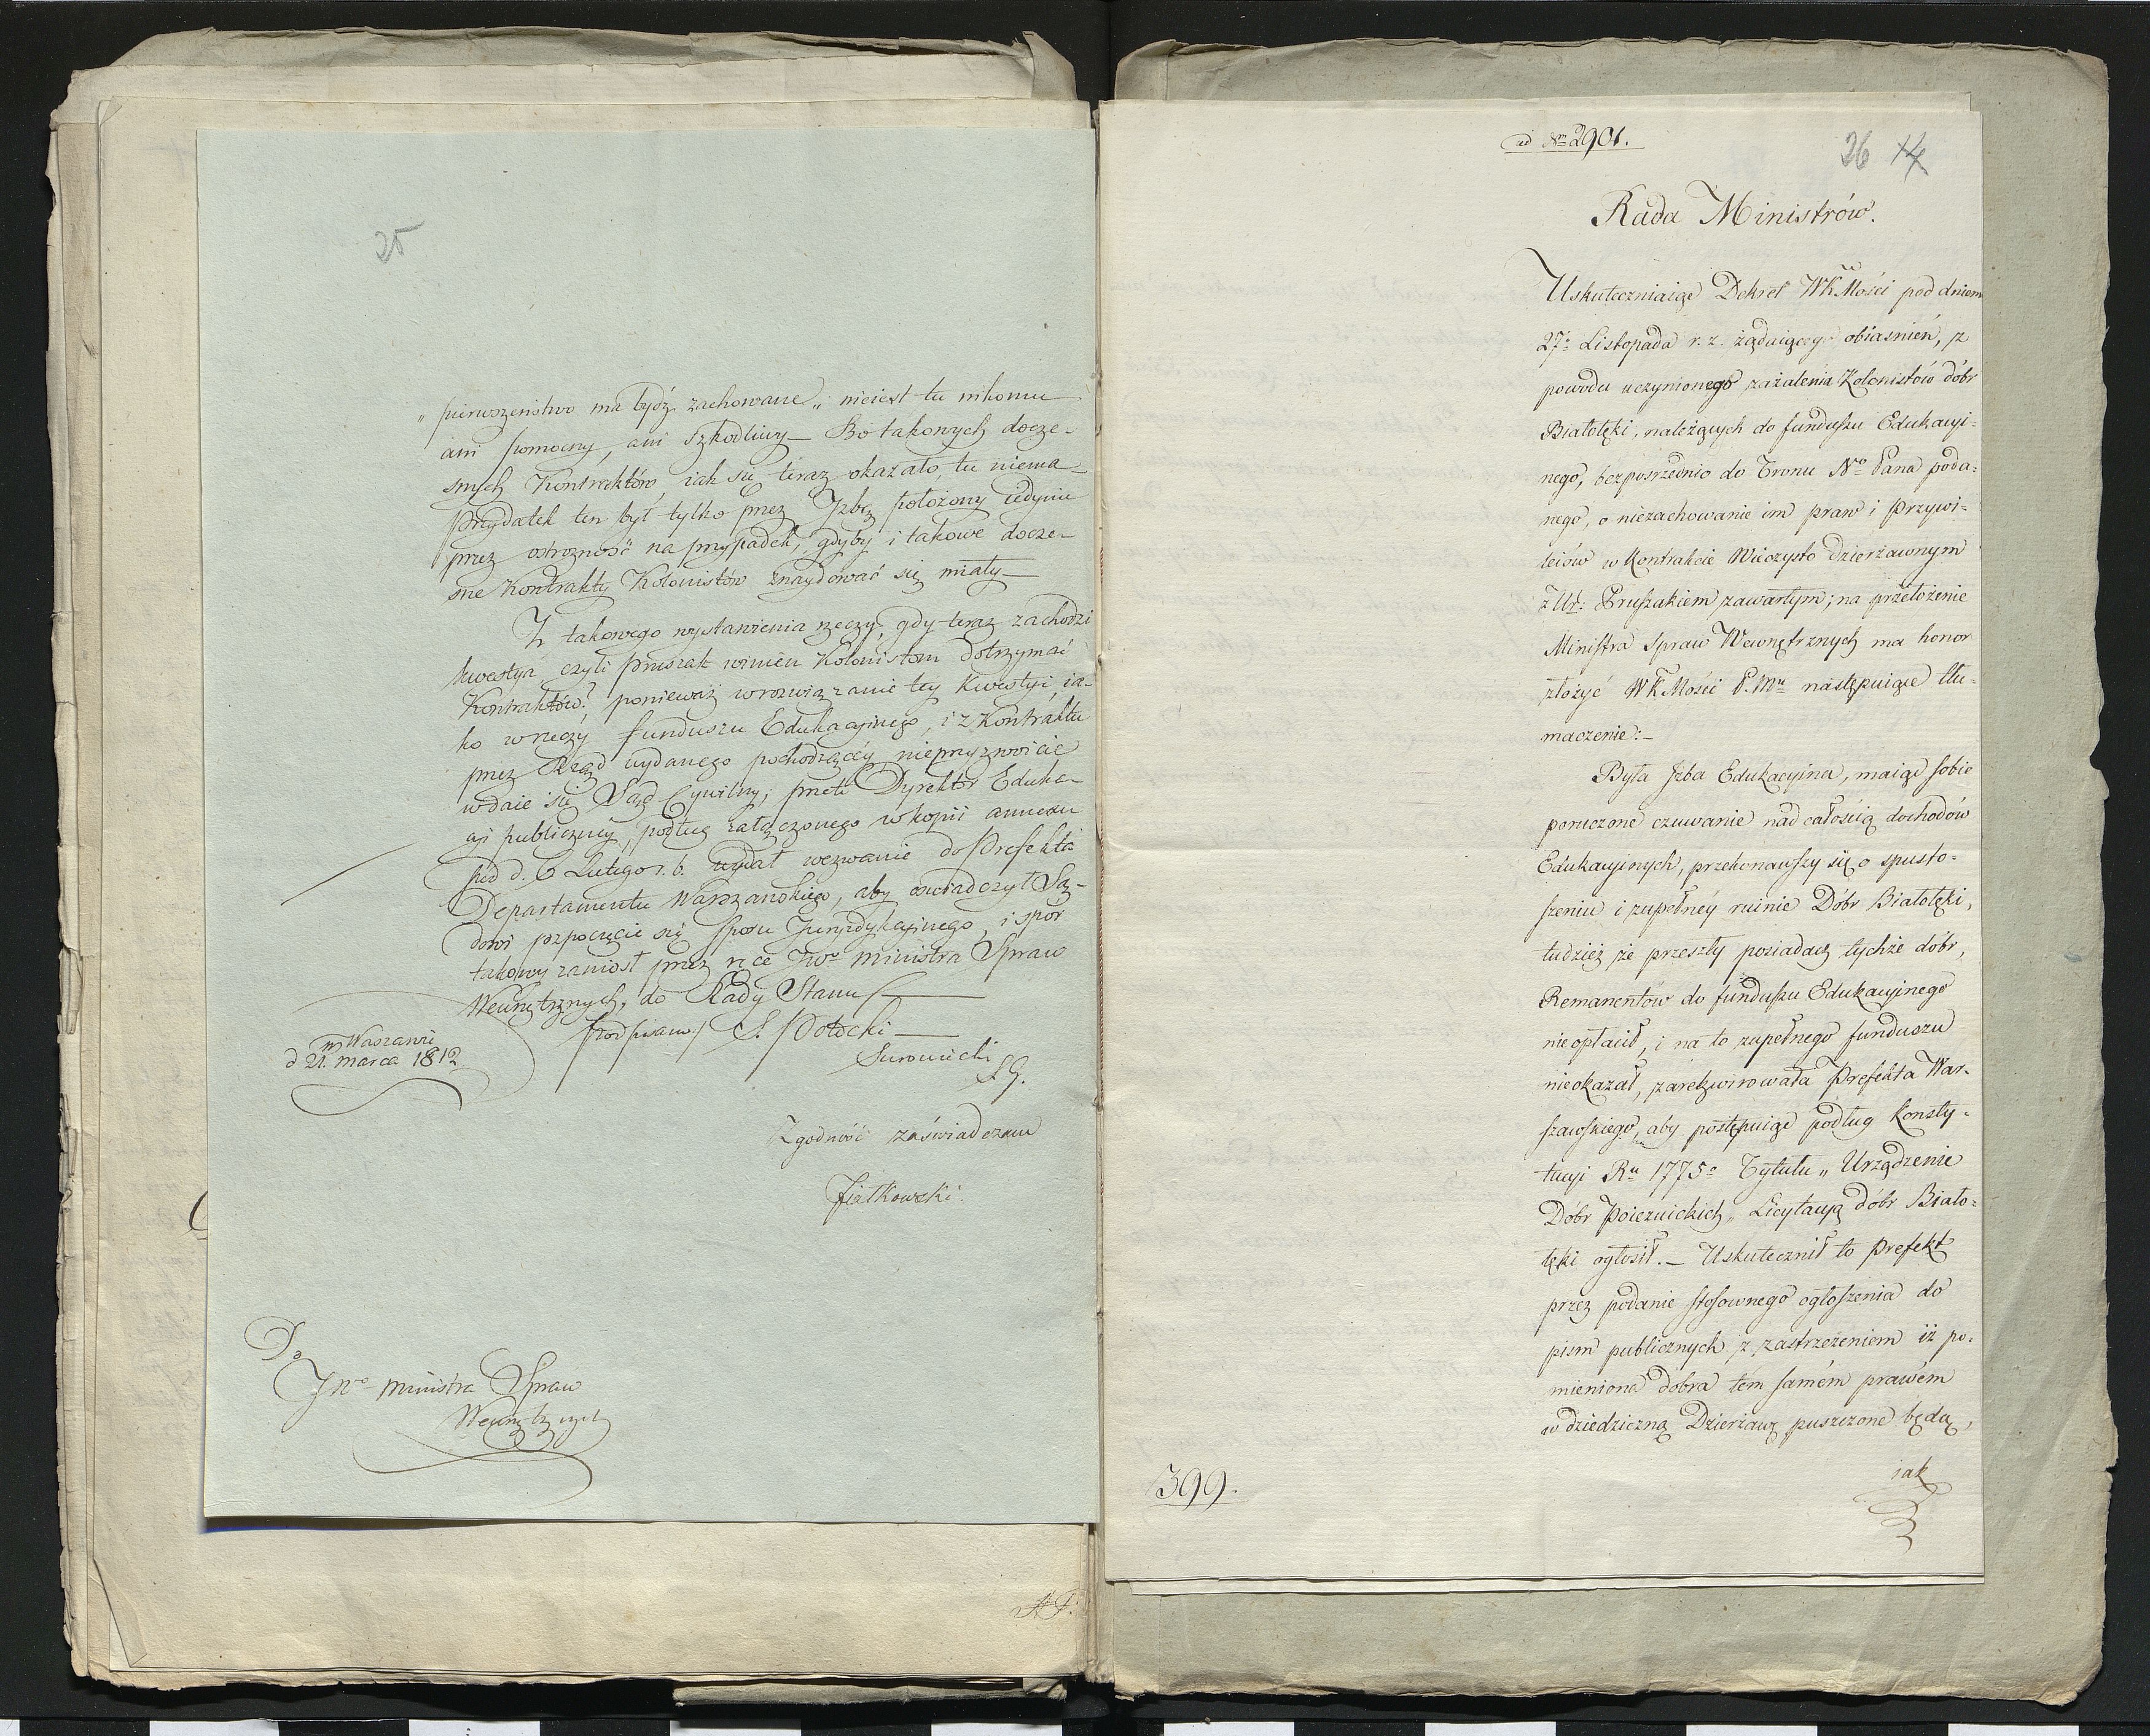 25
„pierwszeństwo ma bydź zachowane„ nieiest tu nikomu
ani pomocny, ani szkodliwy — Bo takowych docze-
snych Kontraktów, iak się teraz okazało, tu niema
Przydatek ten był tylko przez Izbę położony iedynie
przez ostrożność na przypadek, gdyby i takowe docze-
sne Kontrakty Kolonistów znaydować się miały —
Z takowego wystawienia rzeczy, gdy teraz zachodzi
kwestya czyli Pruszak winien Kolonistom dotrzymać
Kontraktów? ponieważ w rozwiązanie tey Kwestyi, ia-
ko w rzeczy funduszu Edukacyinego, i z Kontraktu
przez Rząd wydanego pochodzącéy, nieprzyzwoicie
wdaie się Sąd Cywilny; przeto Dyrektor Eduka-
cyi publiczney, podług załączonego w kopii annexu
pod d. 6 Lutego r. b. wydał wezwanie do Prefekta
Departamentu Warszawskiego, aby oświadczył Są-
dowi rozpoczęcie się sporu Juryzdykcyinego, i spór
takowy zaniosł przez ręce JWo Ministra Spraw
Wewnętrznych, do Rady Stanu —
w Warszawie
d 21. Marca 1812
podpisano/ S. Potocki —
Surowiecki
S G.
Zgodność zaświadczam
Fiałkowski.
Do
JWo Ministra Spraw
Wewnętrznych
ad Nrm 2901.
26 14
Rada Ministrów.
Uskuteczniaiąc Dekret WKMości pod dniem
27o Listopada r. z. żądaiącego obiaśnień, z
powodu uczynionego zażalenia Kolonistów dóbr
Białołęki, należących do funduszu Edukacyi=
nego, bezpośrzednio do Tronu No Pana poda=
nego, o niezachowanie im praw i Przywi=
leiów w Kontrakcie Wieczysto dzierżawnym
z Ur: Pruszakiem zawartym; na przełożenie
Ministra Spraw Wewnętrznych ma honor
złożyć WKMości P. Mu następuiące tłu=
maczenie: —
Była Izba Edukacyina, maiąc sobie
poruczone czuwanie nad całością dochodów
Edukacyinych, przekonawszy się o spusto=
szeniu i zupełnéy ruinie Dóbr Białołęki,
tudzież że przeszły posiadacz tychże dóbr,
Remanentów do funduszu Edukacyinego
nieopłacił, i na to zupełnego funduszu
nieokazał, zarekwirowała Prefekta War-
szawskiego, aby postępuiąc podług Konsty=
tucyi Ru 1775o Tytułu „Urządzenie
Dóbr Poiezuickich„ Licytacyą dóbr Biało=
łęki ogłosił. — Uskutecznił to Prefekt
przez podanie stosownego ogłoszenia do
pism publicznych z zastrzeżeniem iż po=
mienione dobra tem samém prawém
w dziedziczną Dzierżawę puszczone będą,
iak
399.